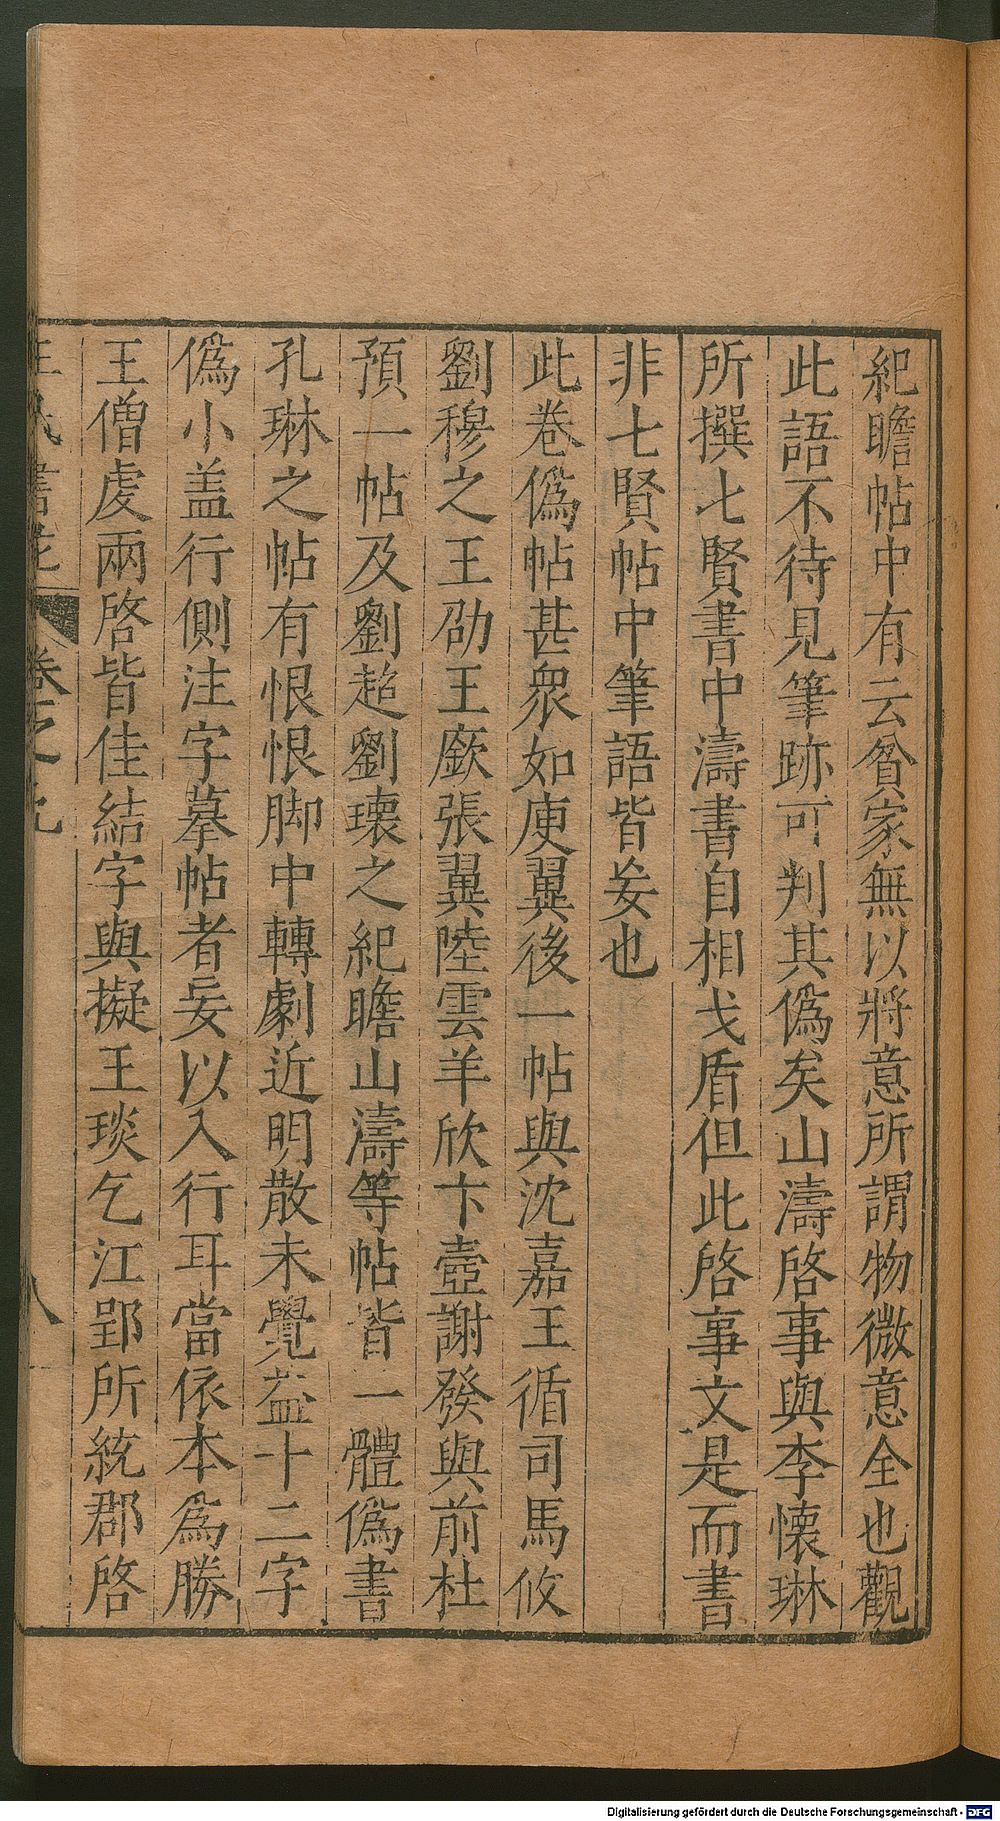 紀瞻帖中有云貧家無以將意所謂物微意全也觀
此語不待見筆跡可判其僞矣山濤啓事與李懷琳
所撰七賢書中濤書自相戈盾但此啓事文是而書
非七賢帖中筆語皆妄也
此卷僞帖甚衆如庾翼後一帖與沈嘉王循司馬攸
劉穆之王劭王廞張翼陸雲羊欣卞壼謝發與前杜
預一帖及劉超劉瓌之紀瞻山濤等帖皆一體僞書
孔琳之帖有恨恨脚中轉劇近明散未覺益十二字
僞小盖行側注字摹帖者妄以入行耳當依本爲勝
王僧虔兩啓皆佳結字與擬王琰乞江郢所統郡啓
王氏書苑
卷之九
八
Digitalisierung gefördert durch die Deutsche Forschungsgemeinschaft - DFG